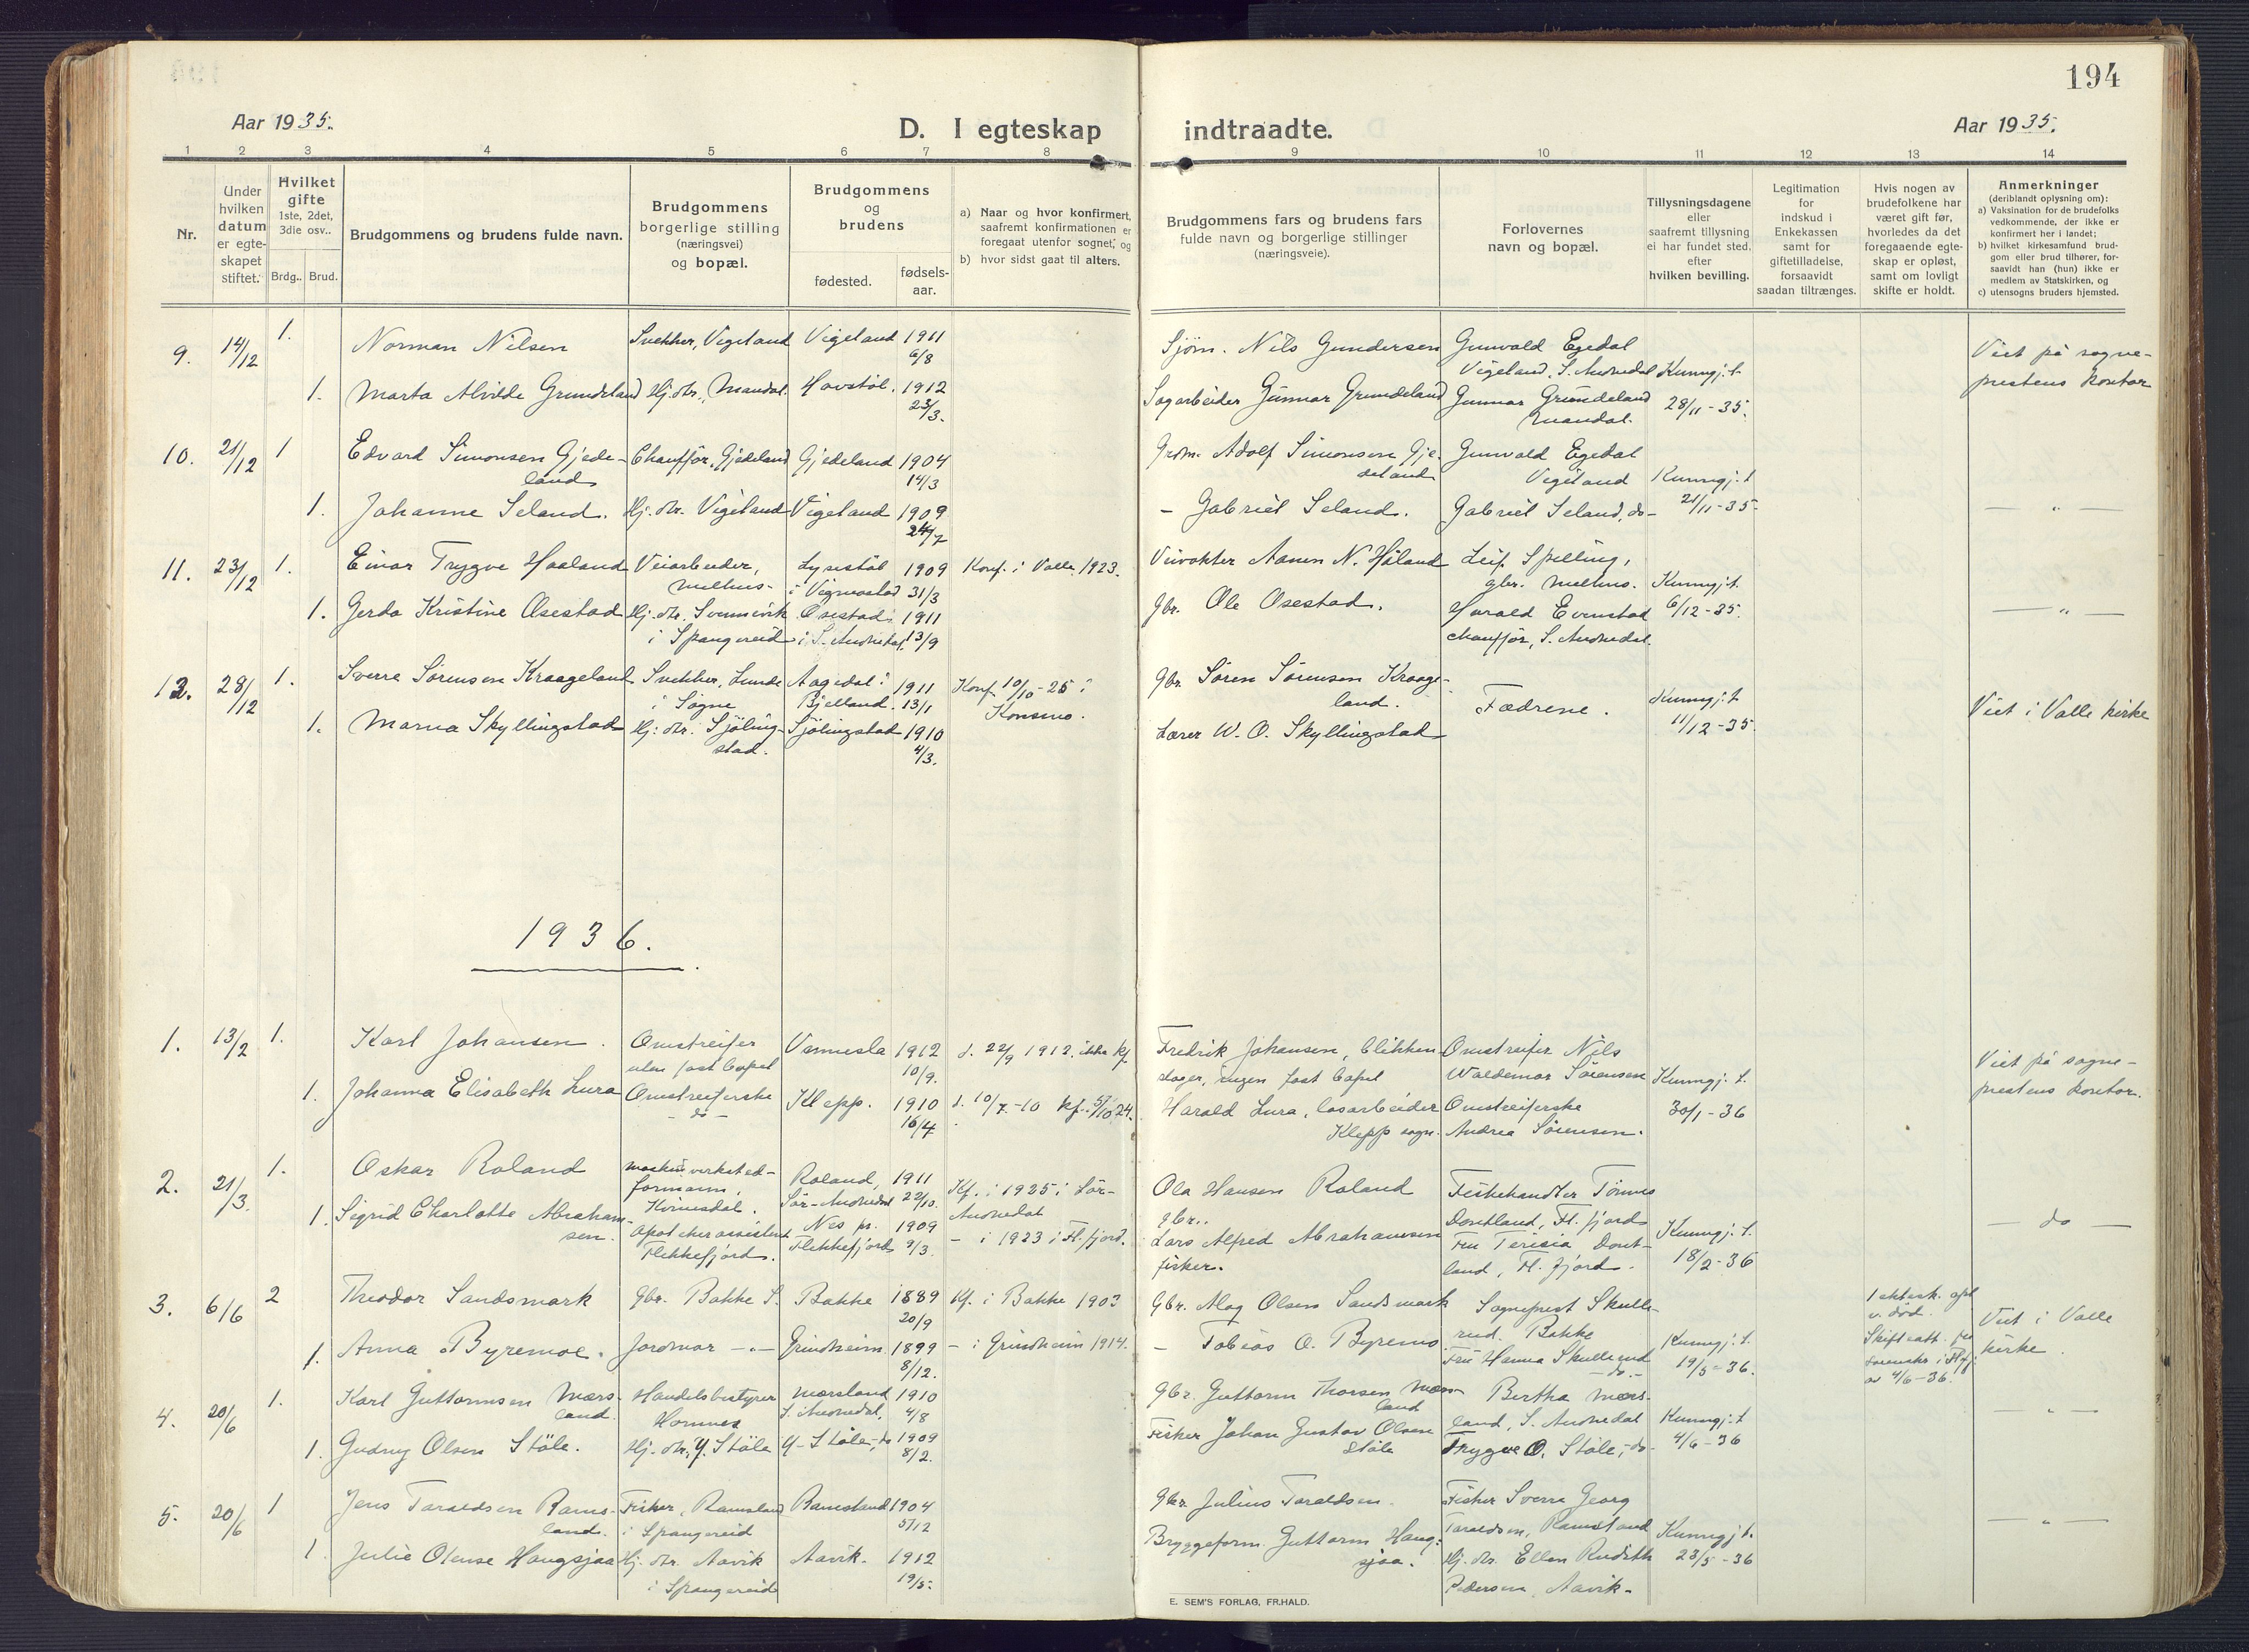 194
Aar 1935.
D. I egteskap indtraadte.
Aar 1935.
1 2 3 4 5 6 7 8 9 10 11 12 13 14
Nr.
Under
hvilken
datum
er egte-
skapet
stiftet.
Hvilket
gifte
1ste, 2det,
3die osv..
Brdg.. Brud.
Brudgommens og brudens fulde navn.
Brudgommens
borgerlige stilling
(næringsvei)
og bopæl.
Brudgommens
og
brudens
fødested.
fødsels-
aar.
a) Naar og hvor konfirmert,
saafremt konfirmationen er
foregaat utenfor sognet, og
b) hvor sidst gaat til alters.
Brudgommens fars og brudens fars
fulde navn og borgerlige stillinger
(næringsveie).
Forlovernes
navn og bopæl.
Tillysningsdagene
eller
saafremt tillysning
ei har fundet sted,
efter
hvilken bevilling.
Legitimation
for
indskud i
Enkekassen
samt for
giftetilladelse,
forsaavidt
saadan tiltrænges.
Hvis nogen av
brudefolkene har
været gift før,
hvorledes da det
foregaaende egte-
skap er opløst,
samt om lovligt
skifte er holdt.
Anmerkninger
(deriblandt oplysning om):
a) Vaksination for de brudefolks
vedkommende, der ikke er
konfirmert her i landet;
b) hvilket kirkesamfund brud-
gom eller brud tilhører, for-
saavidt han (hun) ikke er
medlem av Statskirken, og
c) utensogns bruders hjemsted.
9. 14/12 1. Norman Nilsen
Snekker, Vigeland
Vigeland 1911
6/8
Sjøm. Nils Gundersen
Gunvald Egedal
Vigeland, S. Audnedal
Kunngj. t.
28/11-35.
Viet på sogne-
prestens kontor
1. Marta Alvilde Grundeland
Hj. dtr., Mandal.
Havstöl. 1912
23/3.
Sagarbeider Gunnar Grundeland
Gunnar Grundeland
Mandal.
10. 21/12 1 Edvard Simonsen Gjede-
land
Chaufför, Gjedeland
Gjedeland 1904
14/3
Grdm. Adolf Simonsen Gje-
deland
Gunvald Egedal
Vigeland
Kunngj. t
21/11-35-
— " —
1. Johanne Seland.
Hj. dtr. Vigeland
Vigeland 1909
24/7
- Gabriel Seland.
Gabriel Seland, do-
11. 23/12 1. Einar Trygve Haaland
Veiarbeider,
Melhus-
Lysestöl
i Vigmostad
1909
31/3
Konf. i Valle 1923.
Veivokter Aanen N. Håland
Leif Spilling,
gbr. Melhus.
Kunngj. t.
6/12-35.
— " —
1. Gerda Kristine Osestad
Hj. dtr. Svennevik
i Spangereid
Osestad
i S. Audnedal
1911
13/9
gbr. Ole Osestad.
Harald Evenstad
chauffør, S. Audnedal.
12. 28/12 1. Sverre Sörensen Kraageland
Snekker, Lunde
i Søgne
Aagedal i
Bjelland.
1911
13/1
Konf. 10/10-25 i
Konsmo.
gbr. Sören Sörensen Kraage-
land.
Fædrene.
Kunngj. t
11/12-35.
Viet i Valle kirke
1. Marna Skyllingstad
Hj. dtr. Sjöling-
stad.
Sjölingstad 1910
4/3.
Lærer W. O. Skyllingstad
1936.
1. 13/2 1. Karl Johansen.
Omstreifer
uten fast bopel
Vennesla 1912
10/9.
d. 22/9 1912. ikke kf.
Fredrik Johansen, blikken-
slager, ingen fast bopel
Omstreifer Nils
Waldemar Sörensen
Kunngj. t.
30/1-36
Viet på sogne-
prestens kontor.
1. Johanna Elisabeth Lura
Omstreiferske
- do -
Klepp. 1910
16/4
d. 10/7-10 kf. 5/10 24.
Harald Lura, løsarbeider
Klepp sogn.
Omstreiferske
Andrea Sörensen.
2. 21/3. 1. Oskar Roland
Maskinverksted-
formann,
Kvinesdal.
Roland,
Sör-Audnedal
1911
22/10.
Kf. i 1925 i Sör-
Audnedal
Ola Hansen Roland
gbr..
Fiskehandler Tönnes
Dontland, Fl. fjord
Kunngj. t.
18/2-36
— do —
1. Sigrid Charlotte Abraham-
sen.
Apotekerassistent
Flekkefjord.
Nes ps.
Flekkefjord
1909
9/3.
- i 1923 i Fl. fjord.
Lars Alfred Abrahamsen
fisker.
Fru Terisia Dont-
land, Fl. fjord.
3. 6/6 2 Theodor Sandsmark
gbr. Bakke S.
Bakke 1889
20/9
Kf. i Bakke 1903
gbr. Aog Olsen Sandsmark
Sogneprest Skulle-
rud. Bakke
Kunngj. t.
19/5-36.
1 ektesk. opl
v. død.
Skifteatt. fra
sorenskr i Flfj.
av 4/6-36.
Viet i Valle
kirke.
1. Anna Byremoe.
Jordmor -"-
Grindheim 1899
8/12.
- i Grindheim 1914.
- Tobias O. Byremo
Fru Hanna Skullerud
-do.-
4. 20/6 1. Karl Guttormsen Mærs-
land.
Handelsbestyrer
Homnes
Mærsland
S. Audnedal,
1910
4/8
gbr. Guttorm Thorsen Mærs-
land
Bertha Mærs-
land, S. Audnedal
Kunngj. t
4/6-36
— " —
1. Gudny Olsen Stöle.
Hj. dtr. Y. Stöle
Y-Stöle, do
1909
8/2.
Fisker Johan Gustav Olsen
Stöle
Trygve O. Stöle, -do-
5. 20/6 1 Jens Taraldsen Rams-
land.
Fisker, Ramsland
i Spangereid
Ramsland 1904
5/12
gbr. Julius Taraldsen.
Fisker Sverre Georg
Taraldsen, Ramsland
Kunngj t.
23/5-36
— " —
1. Julie Olense Haugsjaa
Hj. dtr. Aavik
i Spangereid
Aavik. 1912
19/5.
Bryggeform. Guttorm Haug-
sjaa.
Hj. dtr. Ellen Rudith
Pedersen, Aavik-
E. SEM'S FORLAG, FR.HALD.